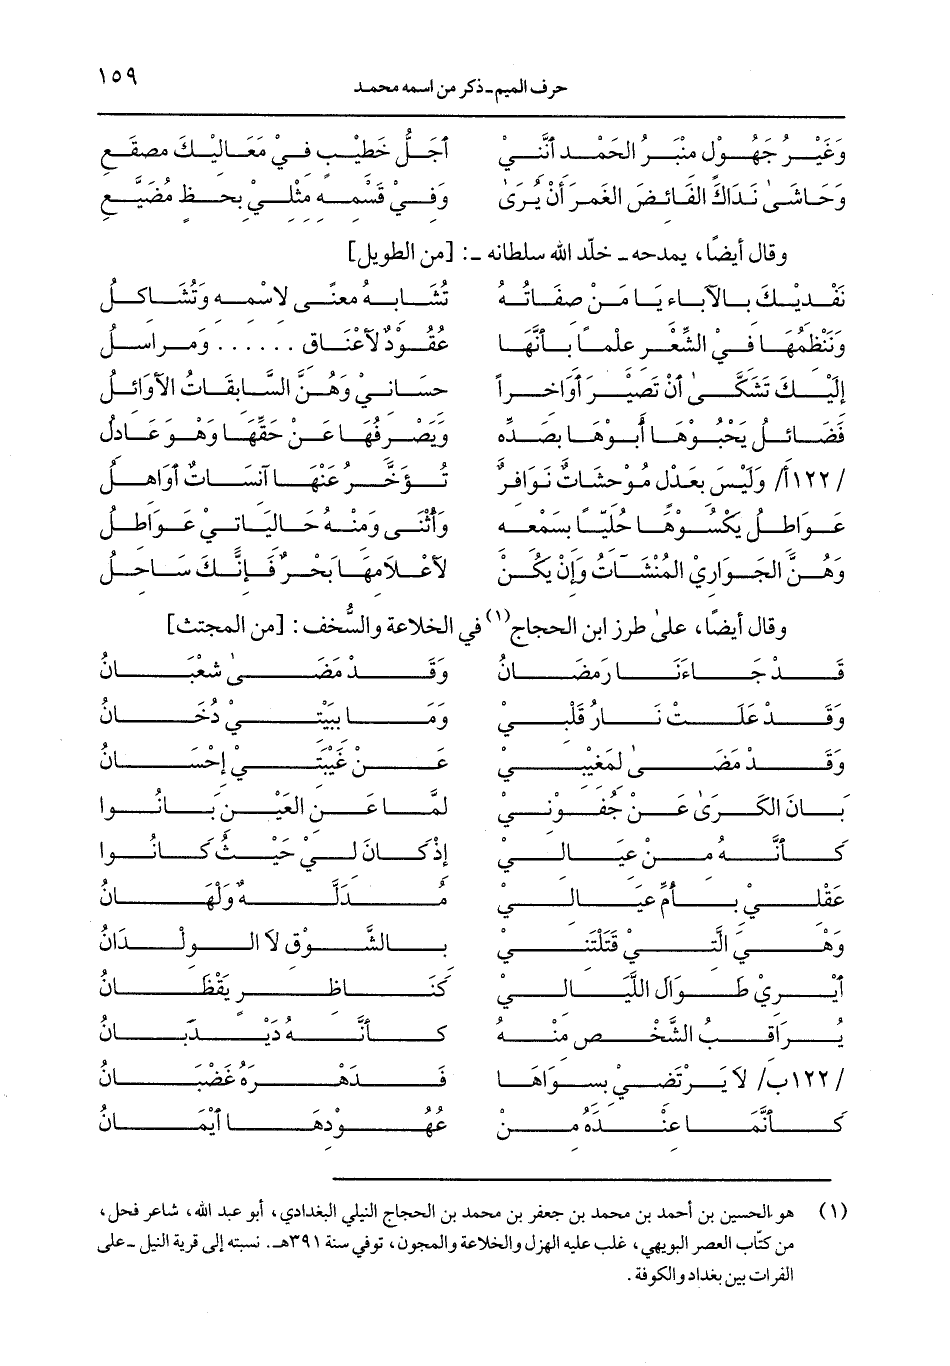 حرف الميم ـ ذكر من اسمه محمد ١٥٩
وَغَيْرُ جَهُولٍ مِنْبَرُ الحَمْدِ أَنَّنِيْ أَجَلُّ خَطِيْبٍ فِيْ مَعَالِيْكَ مِصْقَعِ
وَحَاشَىٰ نَدَاكَ الفَائِضَ الغَمرَ أَنْ يُرَىٰ وَفِيْ قَسْمِهِ مِثْلِيْ بِحَظٍّ مُضَيَّعِ
وقال أيضًا، يمدحه ـ خلّد الله سلطانه ـ: [من الطويل]
نَفْدِيْكَ بِالآبَاءِ يَا مَنْ صِفَاتُهُ تُشَابِهُ مَعنًى لاسْمِهِ وَتُشَاكِلُ
وَنَنْظِمُهَا فِيْ الشِّعْرِ عِلْمًا بِأَنَّهَا عُقُوْدٌ لأَعْنَاقِ . . . . . . وَمراسِلُ
إِلَيْكَ تَشَكَّىٰ أَنْ تَصِيْرَ أَوَاخِراً حِسَانِيْ وَهُنَّ السَّابِقَاتُ الأَوَائِلُ
فَضَائِلُ يَحْبُوْهَا أَبُوْهَا بِصَدِّهِ وَيَصْرِفُهَا عَنْ حَقِّهَا وَهْوَ عَادِلُ
/١٢٢أ/ وَلَيْسَ بِعَدْلٍ مُوْحِشَاتٌ نَوَافِرٌ تُؤَخَّرُ عَنْهَا آنِسَاتٌ أَوَاهِلُ
عَوَاطِلُ يَكْسُوْهَا حُلِيًّا بِسَمْعِهِ وَأَنْثَى وَمِنْهُ حَالِيَاتِيْ عَوَاطِلُ
وَهُنَّ الجَوَارِيْ المُنْشَآتُ وَإِنْ يَكُنْ لأَعْلامِهَا بَحْرٌ فَإِنَّكَ سَاحِلُ
وقال أيضًا، علىٰ طرز ابن الحجاج(١) في الخلاعة والسُّخف: [من المجتث]
قَدْ جَاءَنَا رَمَضَانُ وَقَدْ مَضَىٰ شَعْبَانُ
وَقَدْ عَلَتْ نَارُ قَلْبِيْ وَمَا بِبَيْتِيْ دُخَانُ
وَقَدْ مَضَىٰ لِمَغِيْبِيْ عَنْ غَيْبَتِيْ إِحْسَانُ
بَانَ الكَرَىٰ عَنْ جُفُوْنِيْ لَمَّا عَنِ العَيْنِ بَانُوا
كَأَنَّهُ مِنْ عِيَالِيْ إِذْ كَانَ لِيْ حَيْثُ كَانُوا
عَقْلِيْ بِأُمِّ عِيَالِيْ مُدَلَّهٌ وَلْهَانُ
وَهْيَ الَّتِيْ قَتَلَتْنِيْ بِالشَّوْقِ لاَ الوِلْدَانُ
أَيْرِيْ طَوَالَ اللَّيَالِيْ كَنَاظِرٍ يَقْظَانُ
يُرَاقِبُ الشَّخْصَ مِنْهُ كَأَنَّهُ دَيْدَبَانُ
/١٢٢ب/ لاَ يَرْتَضِيْ بِسِوَاهَا فَدَهْرَهُ غَضْبَانُ
كَأَنَّمَا عِنْدَهُ مِنْ عُهُوْدِهَا أَيْمَانُ
(١) هو الحسين بن أحمد بن محمد بن جعفر بن محمد بن الحجاج النيلي البغدادي، أبو عبد الله، شاعر فحل،
من كتّاب العصر البويهي، غلب عليه الهزل والخلاعة والمجون، توفي سنة ٣٩١هـ. نسبته إلى قرية النيل ـ على
الفرات بين بغداد والكوفة.